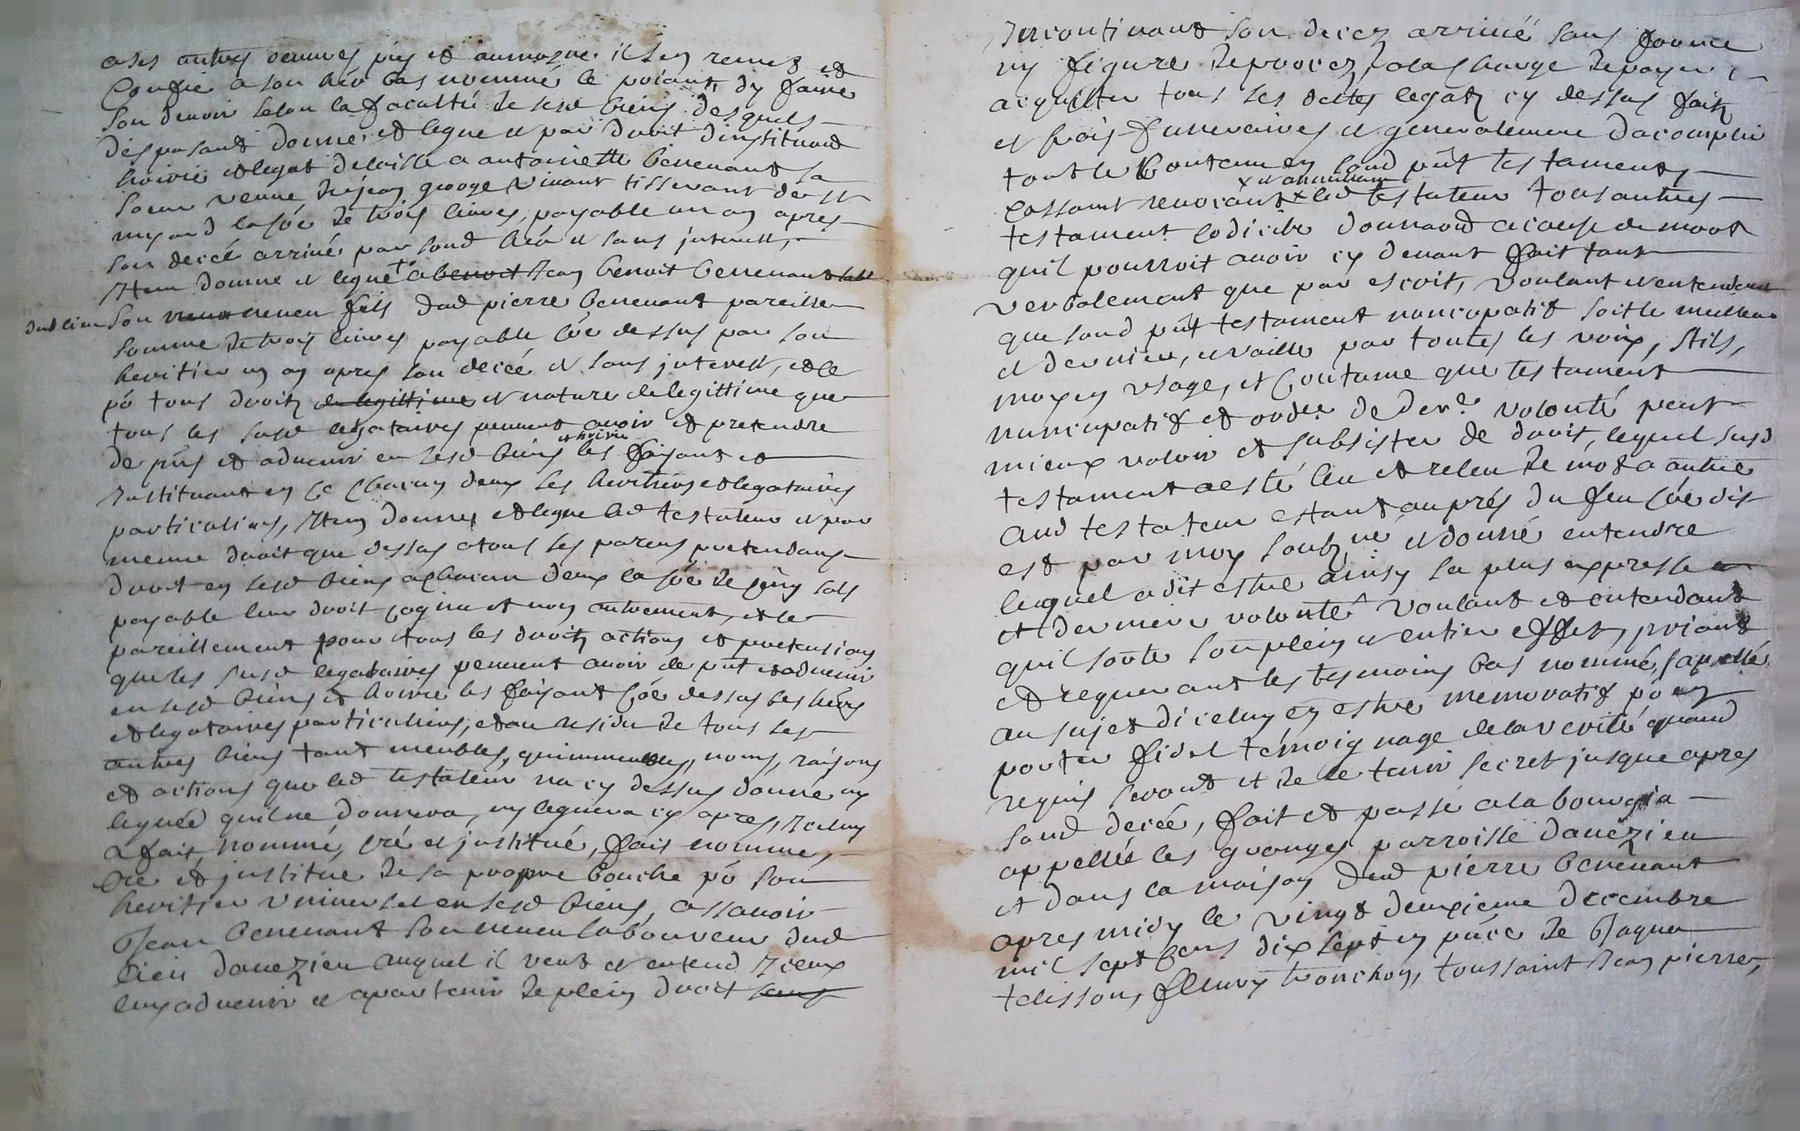 a ses autres oeuvres pies et aumosne il s'en remet et
Confie a son her bas nommé le priant dy faire
son devoir selon la faculté de sesd biens desquels
disposant donne et legue et par droit d'institution
hoirie et legat delaisse a antoinette benevent sa
soeur veuve de jean george vivant tisserant de st
la soe de trois livres, payable un an apres
son decé arrivé par sond heré et sans interest,
Item donne et legue a benoit Jean benoit benevent
dud lieu son neveu fils dud pierre benevent pareille
somme de trois livres payable coe dessus par son
heritier un an apres son decée et sans interest, et ce
po tous droitz de legittime et nature de legittime que
tous les susd legataires peuvent avoir et pretendre
de pnt et advenir en sesd biens et hoirie les faisant et
Instituant en ce chacun deux ses heritiers et legataires
particuliers, Item donne et legue led testateur et par
mesme droit que dessus a tous ses parens pretendans
droit en sesd biens a chacun deux la soe de cinq sols
payable leur droit cognu et non autrement, et ce
pareillement pour tous les droitz actions et pretensions
que les susd legataires peuvent avoir de pnt et advenir
en sesd biens et hoirie les faisant coe dessus ses hers
et legataires particuliers, et au residu de tous ses
autres biens tant meubles, qu'immeubles, noms, raisons
et actions que led testateur na cy dessus donne ny
legués quil ne donnera, ny leguera cy apres, Iceluy
a fait, nommé, cré et institué, fait nomme,
cre et institue de sa propre bouche po son
heritier universel en sesd biens, assavoir
Jean benevent son neveu laboureur dud
lieu davezieu auquel il veut et entend Iceux
luy advenir et apartenir de plein droit
Incontinant son decez arrivé sans forme
ny figure de procez, a la charge de payer
acquitter tous ses dettes legatz cy dessus faitz
et frais funeraires et generalement dacomplir
tout le Contenu en sond pnt testament,
x et annullant
cassant revocant x led testateur tous autres
testament codicile donnaõn a cause de mort
quil pourroit avoir cy devant fait tant
verbalement que par escrit, voulant et entendant
que sond pnt testament nuncupatif soit le meilleur
et dernier, et vaille par toutes les voix, stils,
moyen usage, et Coutume que testament
nuncupatif et ordre de dere volonté peut
mieux valoir et subsister de droit, lequel susd
testament a esté leu et releu de mot a autre
aud testateur estant auprés du feu coe dit
est par moy soubzné et donné entendre
lequel a dit estre ainsy sa plus expresse
et derniere volonté voulant et entendant
quil sorte son plein et entier effet, priant
et requerant les tesmoins bas nommé, s appellés
au sujet diceluy en estre memoratif po en
porter fidel témoignage de la verité quand
requis seront et de le tenir secret jusque apres
sond decée, fait et passé a la bourgia
appellée les granges parroisse davezieu
et dans la maison dud pierre benevent
apres midy le vingt deuxieme decembre
mil sept Cens dix sept en pñce de Jaque
telisson, fleury tronchon, toussaint Jean pierre,